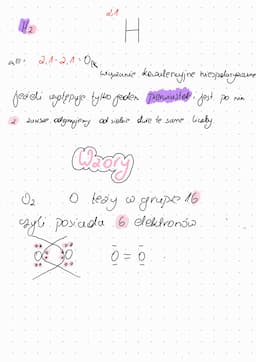 2,1
H₂ H
2,1 - 2,1 = 0
wiązanie kowalencyjne niespolaryzowane
jeżeli występuje tylko jeden pierwiastek i jest po nim
2 zawsze odejmujemy od siebie dwie te same liczby
Wzory
O₂ O leży w grupie 16
czyli posiada 6 elektronów
O O O = O